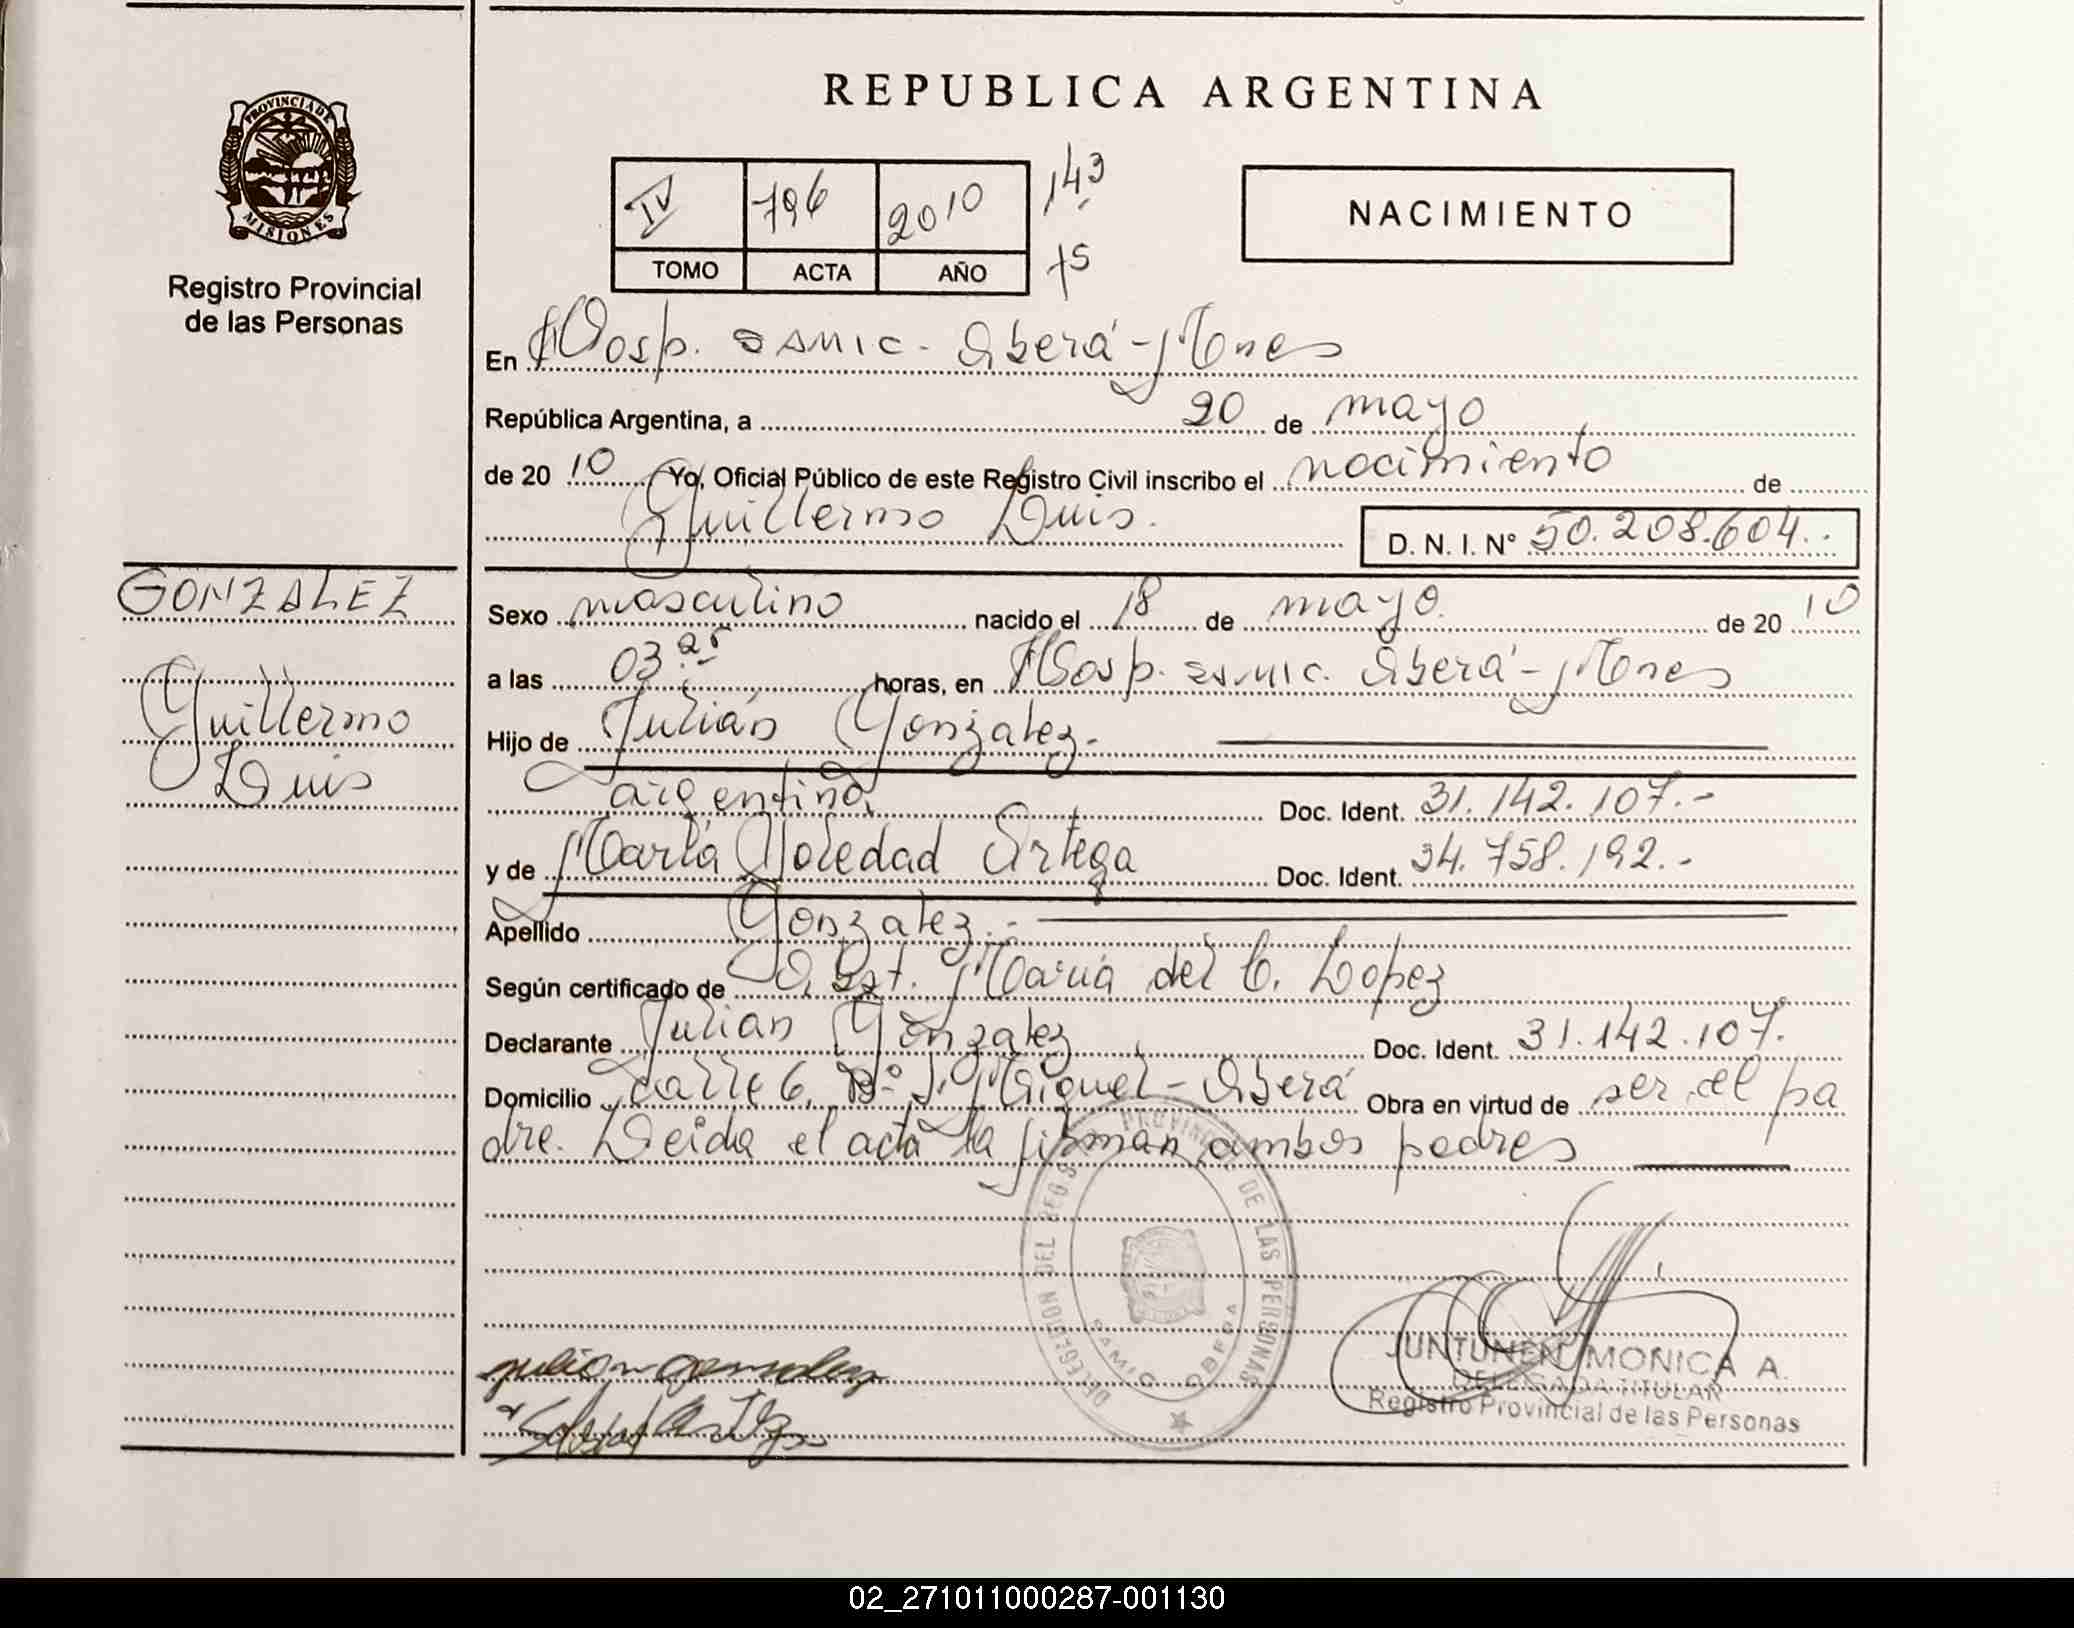 PROVINCIA DE
MISIONES
Registro Provincial
de las Personas
REPUBLICA ARGENTINA
IV 796 2010 143
TOMO ACTA AÑO 75
NACIMIENTO
En Hosp. SAMIC - Oberá - Mnes
República Argentina, a 20 de mayo
de 20 10 Yo, Oficial Público de este Registro Civil inscribo el nacimiento de
Guillermo Luis. D. N. I. N° 50.208.604.
GONZALEZ
Guillermo
Luis
Sexo masculino nacido el 18 de mayo de 20 10
a las 03.25 horas, en Hosp. SAMIC. Oberá - Mnes
Hijo de Julián Gonzalez.-
argentino, Doc. Ident. 31.142.107.-
y de María Soledad Ortega Doc. Ident. 34.758.192.-
Apellido Gonzalez.-
Según certificado de Obst. María del C. Lopez
Declarante Julian Gonzalez Doc. Ident. 31.142.107.
Domicilio calle 6, B° S. Miguel - Oberá Obra en virtud de ser el pa
dre. Leida el acta la firman ambos padres
DELEGACION DEL REGISTRO PROVINCIAL DE LAS PERSONAS
SAMIC OBERA
julian gonzalez
JUNTUNEN MONICA A.
DELEGADA TITULAR
Registro Provincial de las Personas
02_271011000287-001130